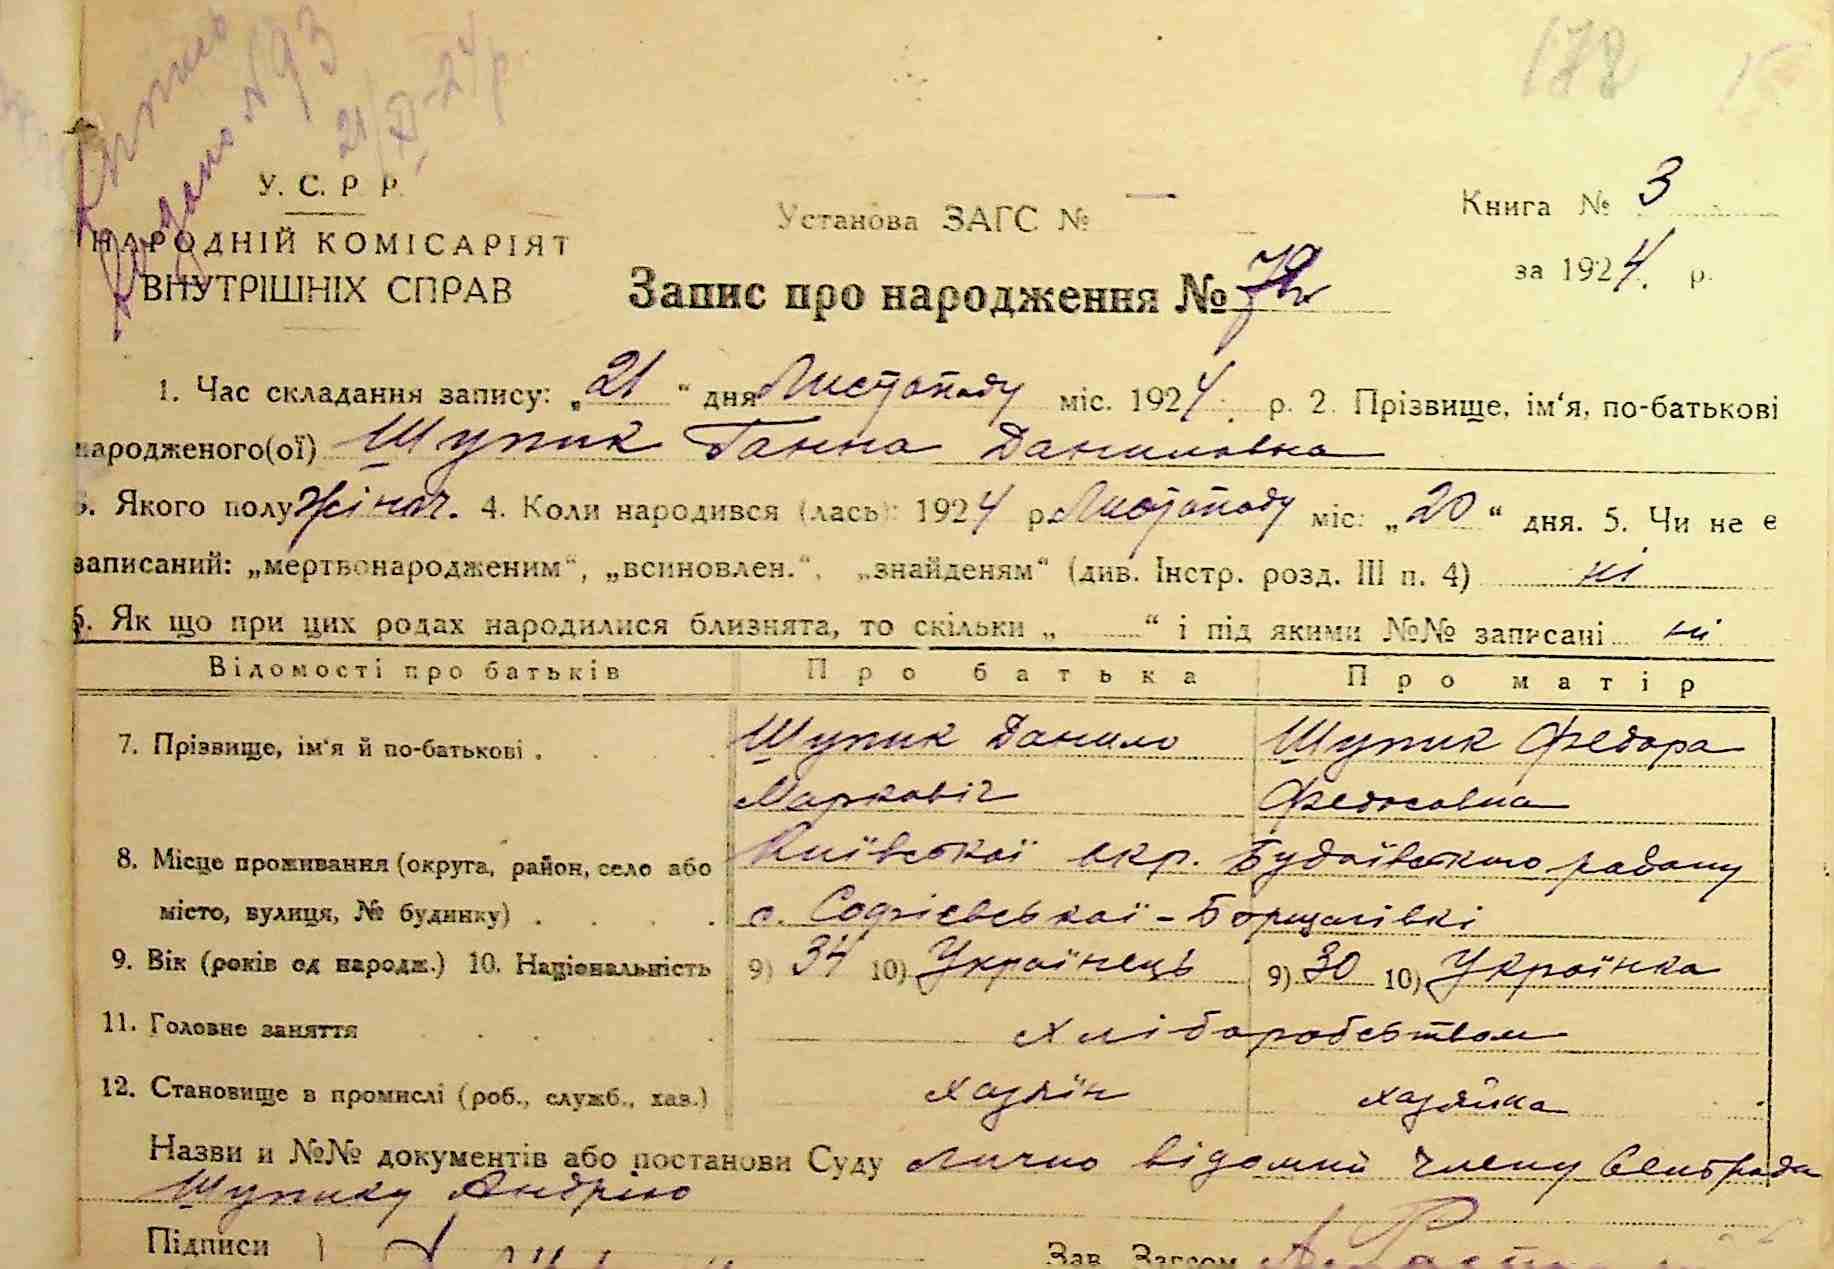 Видано №93
21/XI-24р.
172
У. С. Р. Р.
НАРОДНІЙ КОМІСАРІЯТ
ВНУТРІШНІХ СПРАВ
Установа ЗАГС № —
Книга № 3
за 1924 р.
Запис про народження №
1. Час складання запису: „21“ дня Листопаду міс. 1924 р. 2. Прізвище, ім‘я, по-батькові
народженого(ої) Шупик Ганна Даниловна
3. Якого полу жіноч. 4. Коли народився (лась): 1924 р Листопаду міс: „20“ дня. 5. Чи не є
записаний: „мертвонародженим“, „всиновлен.“, „знайденям“ (див. Інстр. розд. III п. 4) ні
6. Як що при цих родах народилися близнята, то скільки „ “ і під якими №№ записані ні
Відомості про батьків Про батька Про матір
7. Прізвище, ім‘я й по-батькові . Шупик Данило Шупик Федора
Марковіч Федосовна
8. Місце проживання (округа, район, село або Київської окр. Будаївського району
місто, вулиця, № будинку) . с. Софієвської-Борщагівкі
9. Вік (років од народж.) 10. Національність 9) 34 10) Українець 9) 30 10) Українка
11. Головне заняття хліборобством
12. Становище в промислі (роб., служб., хаз.) хазяїн хазяйка
Назви и №№ документів або постанови Суду лично відомий члену Сельради
Шупику Андрію
Підписи Зав. Загсом